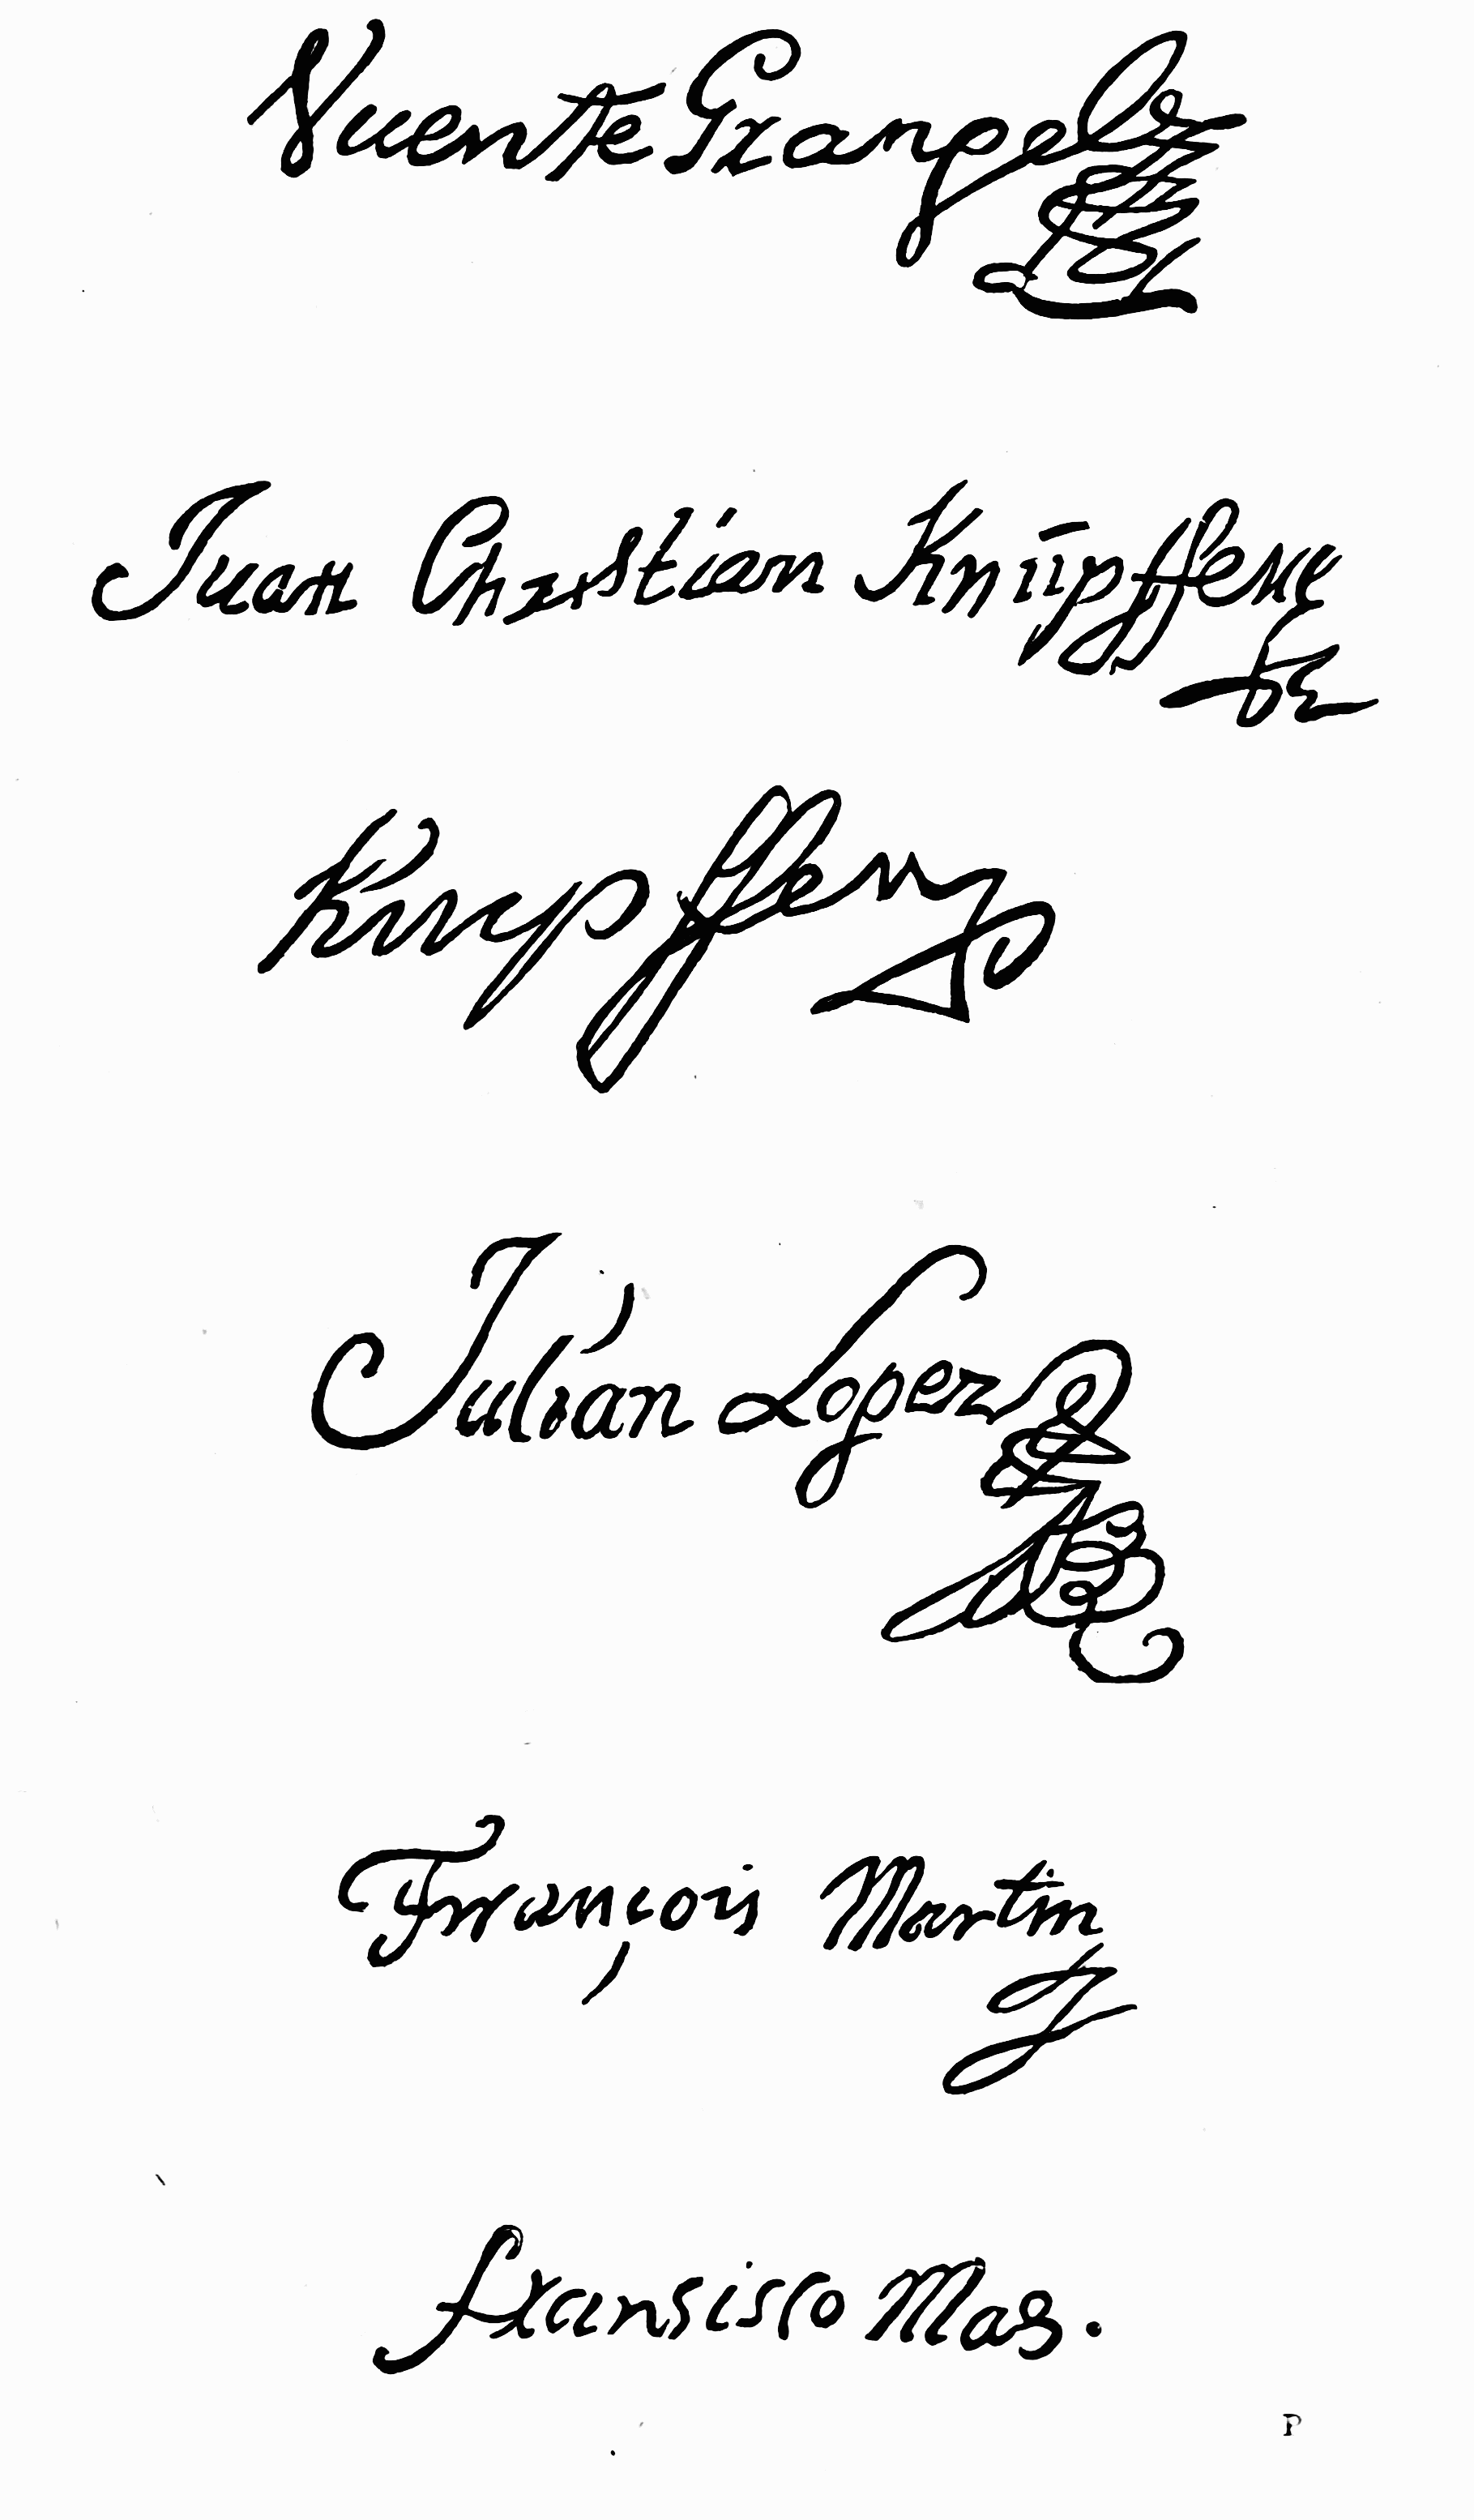 Vicente
Jean Christian Knipffer
Knipffer
Julian Lopez
François Martin
Fransisco Mas.